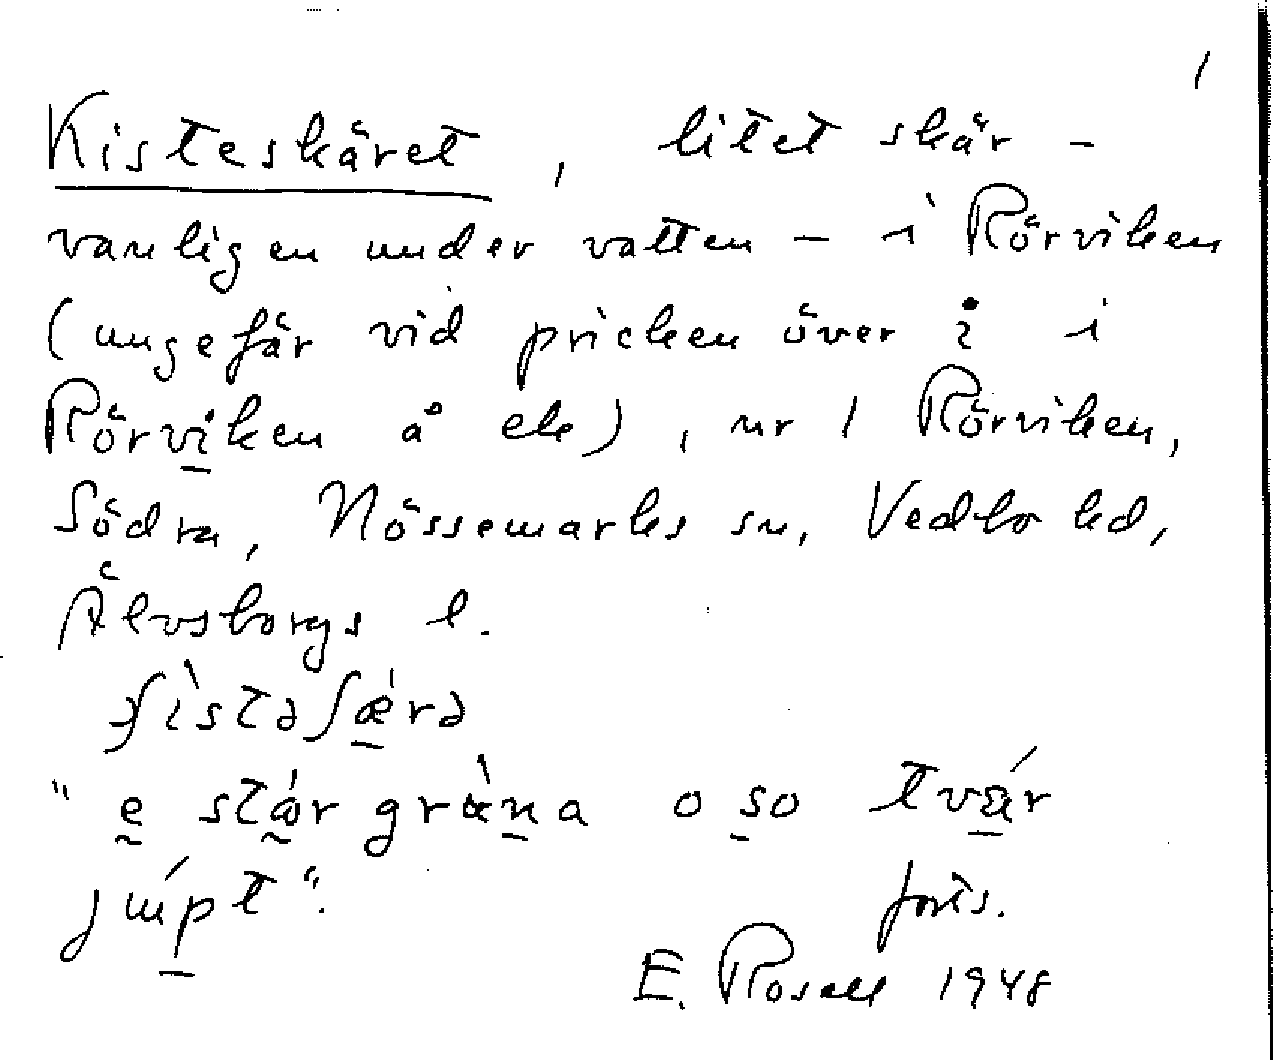 1
Kisteskäret, litet skär -
vanligen under vatten - i Rörviken
(ungefär vid pricken över i i
Rörviken å ek), nr 1 Rörviken,
Södra, Nössemarks sn, Vedbo hd,
Älvsborgs l.
"e
o so
forts.
E. Rosell 1948